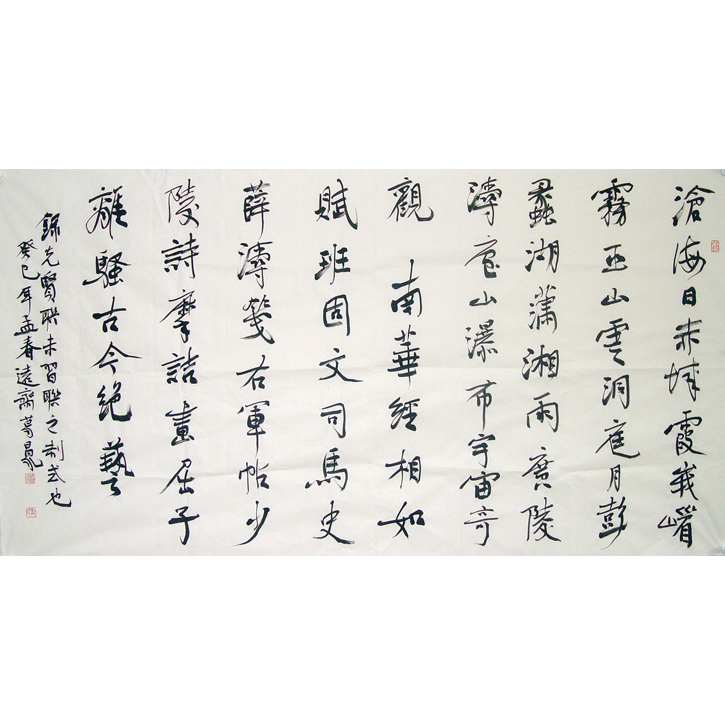 滄海日赤城霞峩嵋
霧巫山雲洞庭月彭
蠡湖瀟湘雨廣陵
濤庐山瀑布宇宙奇
觀 南華經相如
賦班固文司馬史
薛濤箋右軍帖少
陵詩摩詰畫屈子
離騷古今絶藝
錄先賢聯未習聯之制式也
癸巳年孟春遠齋